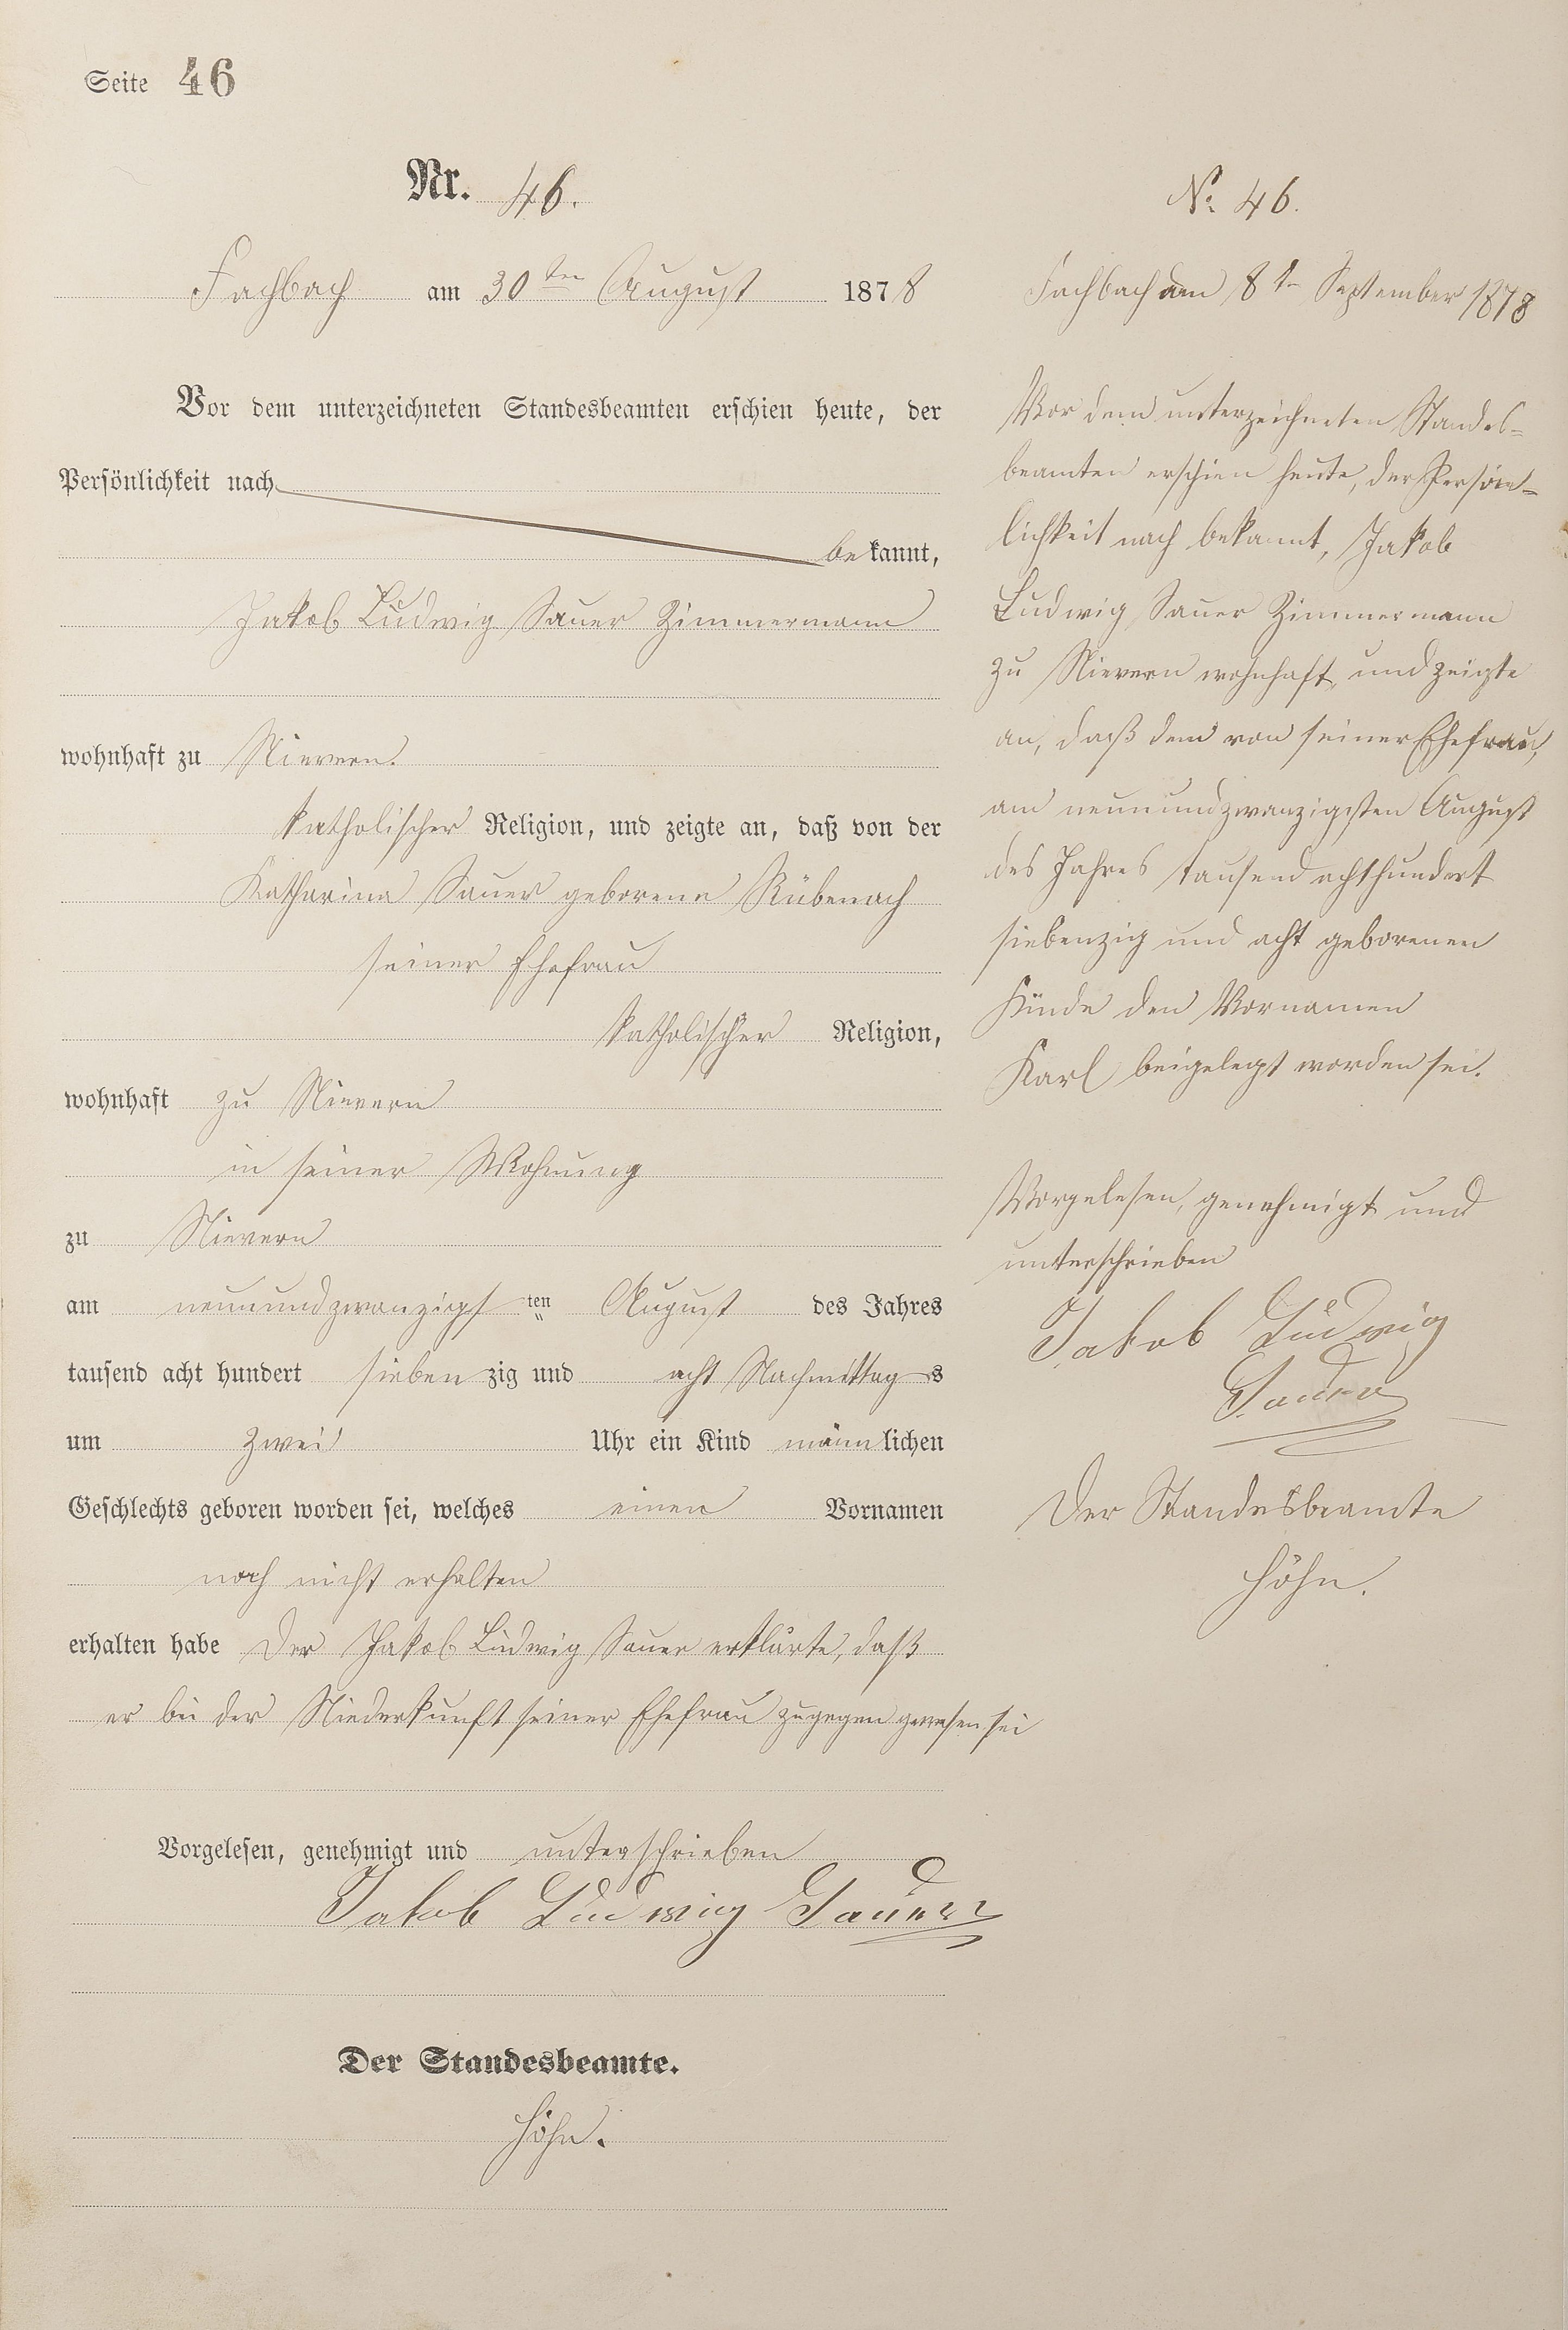 Seite 46
Nr. 46.
Fachbach am 30ten August 1878
Vor dem unterzeichneten Standesbeamten erschien heute, der
Persönlichkeit nach
bekannt,
Jakob Ludwig Sauer Zimmermann
wohnhaft zu Nievern.
katholischer Religion, und zeigte an, daß von der
Katharina Sauer geborene Rübenach
seiner Ehefrau
katholischer Religion,
wohnhaft zu Nievern
in seiner Wohnung
zu Nievern
am neunundzwanzigsten August des Jahres
tausend acht hundert siebenzig und acht Nachmittags
um zwei Uhr ein Kind männlichen
Geschlechts geboren worden sei, welches einen Vornamen
noch nicht erhalten
erhalten habe Der Jakob Ludwig Sauer erklärte, daß
er bei der Niederkunft seiner Ehefrau zugegen gewesen sei
Vorgelesen, genehmigt und unterschrieben
Jakob Ludwig Sauer
Der Standesbeamte.
Höhn.
No. 46.
Fachbach am 8tn September 1878
Vor dem unterzeichneten Standes-
beamten erschien heute, der Persön-
lichkeit nach bekannt, Jakob
Ludwig Sauer Zimmermann
zu Nievern wohnhaft, und zeigte
an, daß dem von seiner Ehefrau,
am neunundzwanzigsten August
des Jahres tausend achthundert
siebenzig und acht geborenen
Kinde den Vornamen
Karl beigelegt worden sei.
Vorgelesen, genehmigt und
unterschrieben
Jakob Ludwig
Sauer
Der Standesbeamte
Höhn.